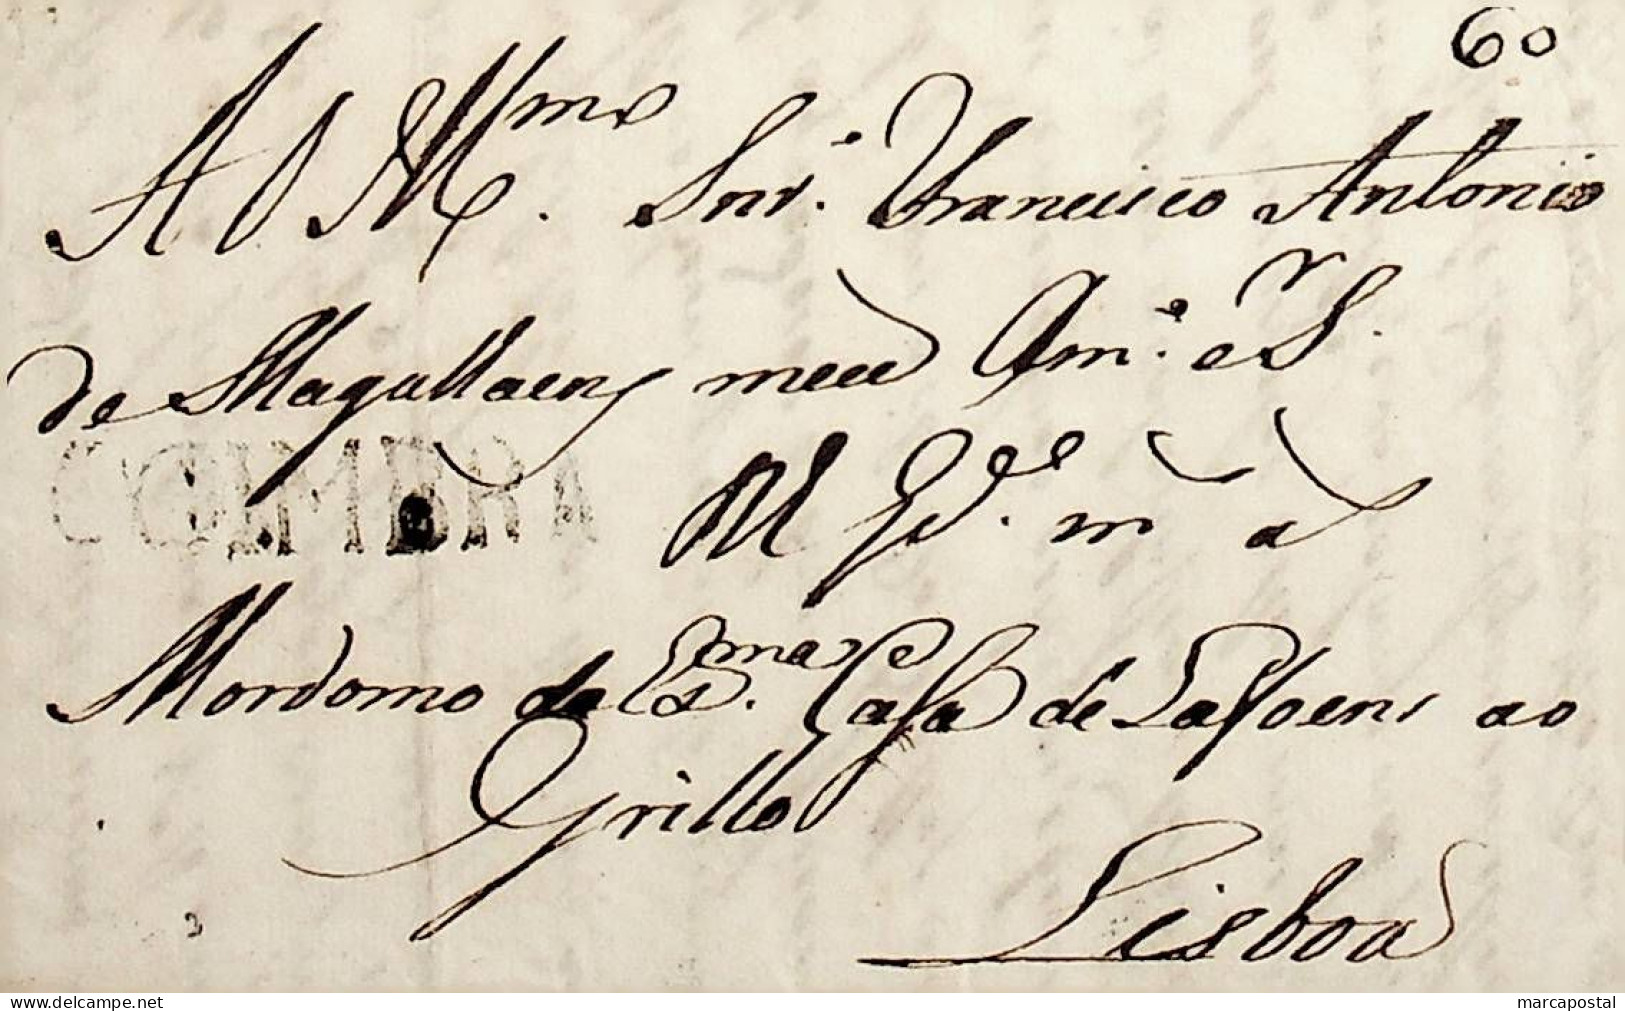 60
A O Il.mo Snr. Francisco Antonio
de Magalhaens meu Am.o e S.r
COIMBRA
G.de m a
Mordomo da Ex.ma Casa de Lafoens ao
Grillo
Lisboa
www.delcampe.net
marcapostal